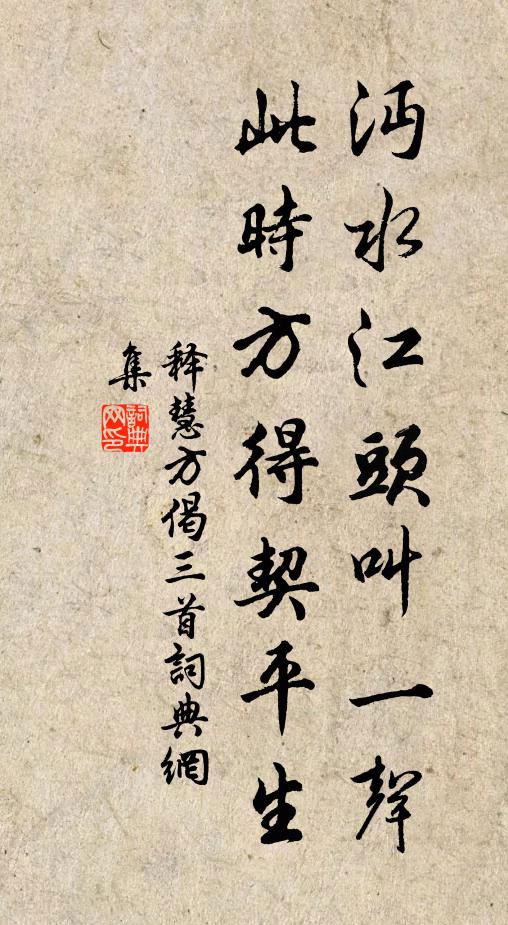 沔水江頭叫一聲
此時方得契平生
释慧方偈三首詞典網
集
詞典
网印